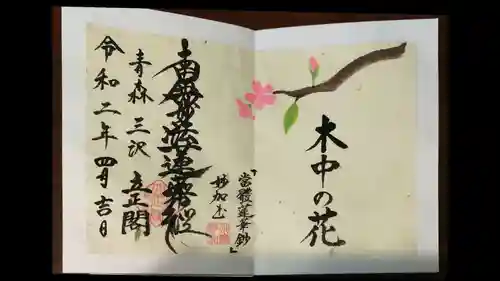 木中の花
「當體蓮華鈔」
妙加玉
南無妙法蓮華経
青森 三沢 立正閣
令和二年四月吉日